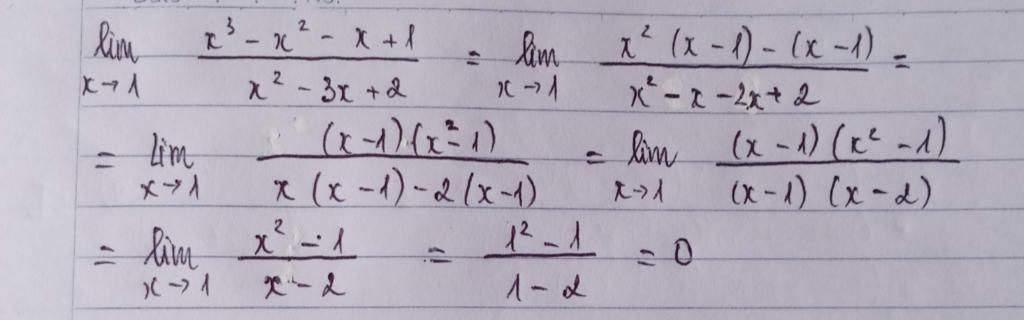 lim x→1 (x³ - x² - x + 1)/(x² - 3x + 2) = lim x→1 (x² (x - 1) - (x - 1))/(x² - x - 2x + 2) =
= lim x→1 ((x - 1) (x² - 1))/(x (x - 1) - 2 (x - 1)) = lim x→1 ((x - 1) (x² - 1))/((x - 1) (x - 2))
= lim x→1 (x² - 1)/(x - 2) = (1² - 1)/(1 - 2) = 0